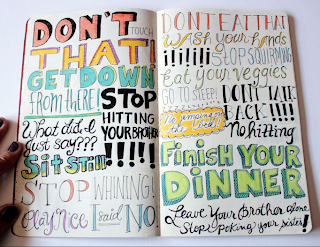 DON'T TOUCH
THAT!
GET DOWN
from there!
STOP
HITTING
YOUR BROTHER
!!!!
What did I
just say???
Sit Still
STOP WHINING!
Play Nice I said NO.
DON'T EAT THAT
Wash your hands
!!!!!!! STOP SQUIRMING
Eat your veggies
GO TO SLEEP! DON'T TALK
BACK!!!
No hitting
Finish YOUR
DINNER
Leave Your Brother alone
Stop poking your sister!